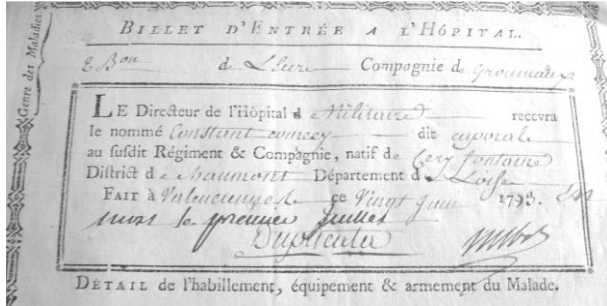 BILLET D'ENTRÉE A L'HÔPITAL.
Genre des Maladies
2 Bon de L'eure Compagnie de
LE Directeur de l'Hôpital Militaire recevra
le nommé Constant dit caporal
au susdit Régiment & Compagnie, natif de fontaine
District de chaumont Département de Loise
FAIT à Valenciennes le ce Vingt juin 1793.
mort le premier juillet
Duplicata
DÉTAIL de l'habillement, équipement & armement du Malade.